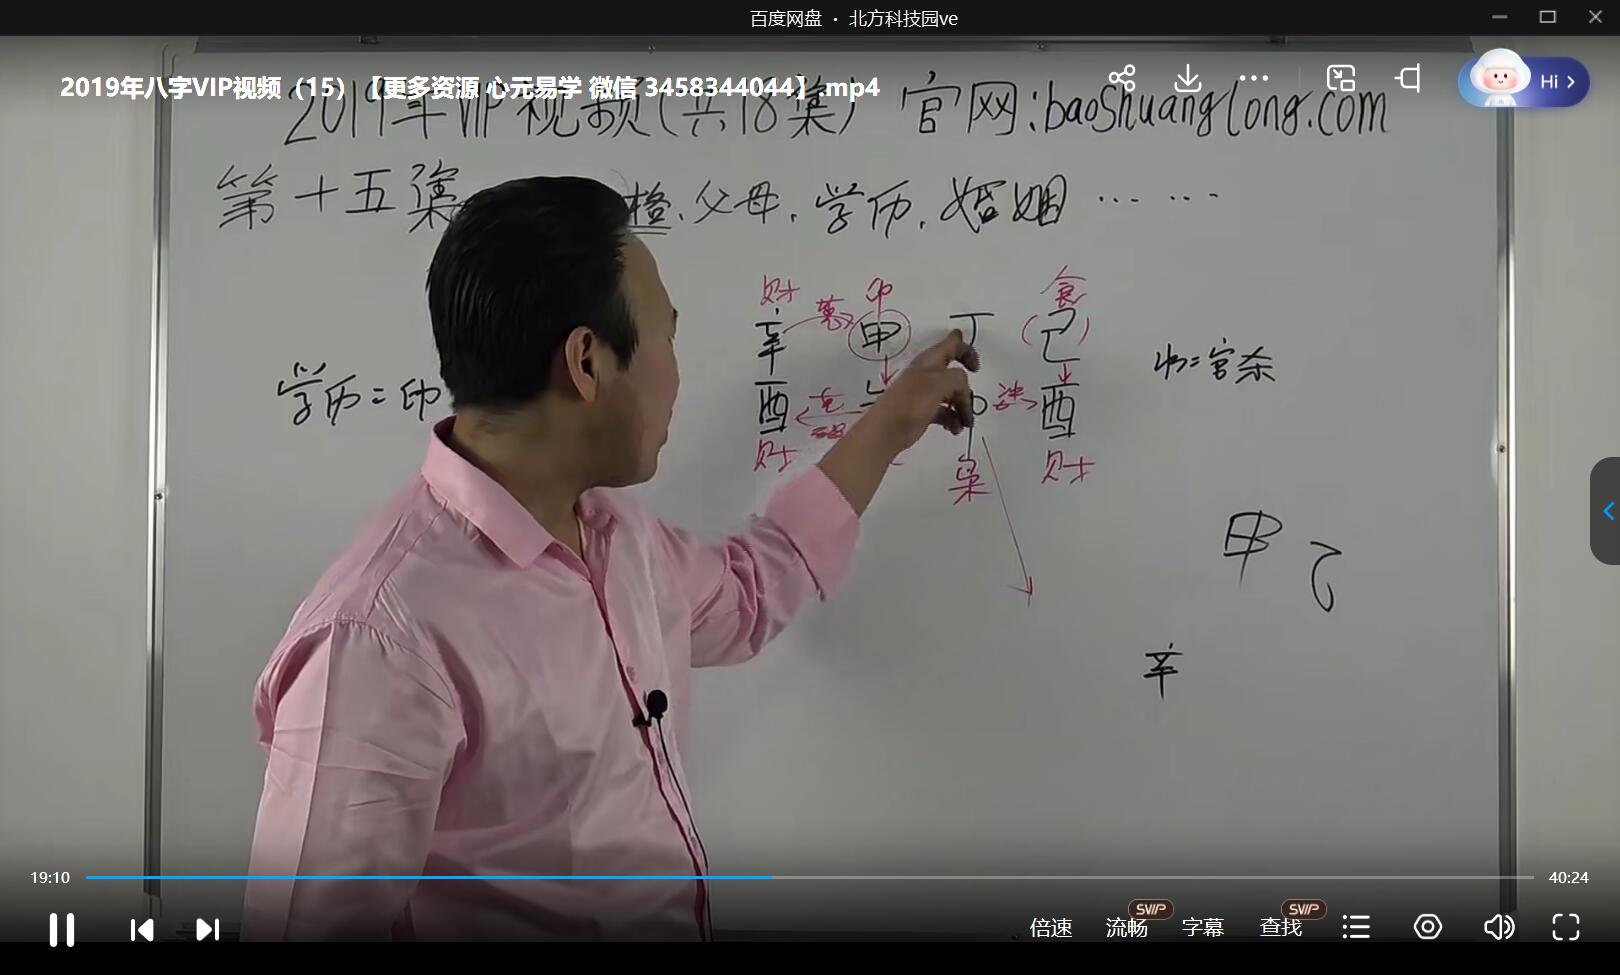 百度网盘 · 北方科技园ve
2019年八字VIP视频（15）【更多资源 心元易学 微信 3458344044】.mp4
Hi
2019年VIP视频(共18集) 官网:baoshuanglong.com
第十五集 格、父母、学历、婚姻……
财 印 食
辛 甲 丁 己
学历=印
官杀
酉 酉
克
财 枭 财
甲 乙
辛
19:10 40:24
倍速 流畅 SVIP 字幕 查找 SVIP